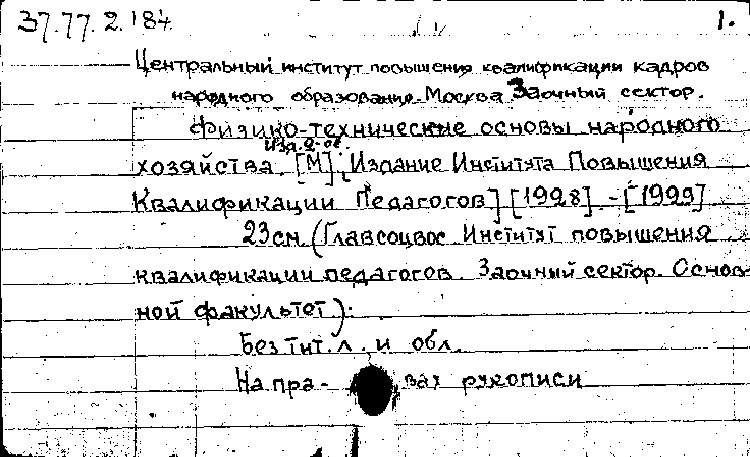 37.77.2.184. 1.
Центральный институт повышения квалификации кадров
народного образования. Москва Заочный сектор.
Физико-технические основы народного
Изд. 2-ое.
хозяйства. [М], [Издание Института Повышения
Квалификации Педагогов] [1928] - [1929]
23 см. (Главсоцвос. Институт повышения
квалификации педагогов. Заочный сектор. Основ-
ной факультет):
Без тит. л. и обл.
На пра- вах рукописи